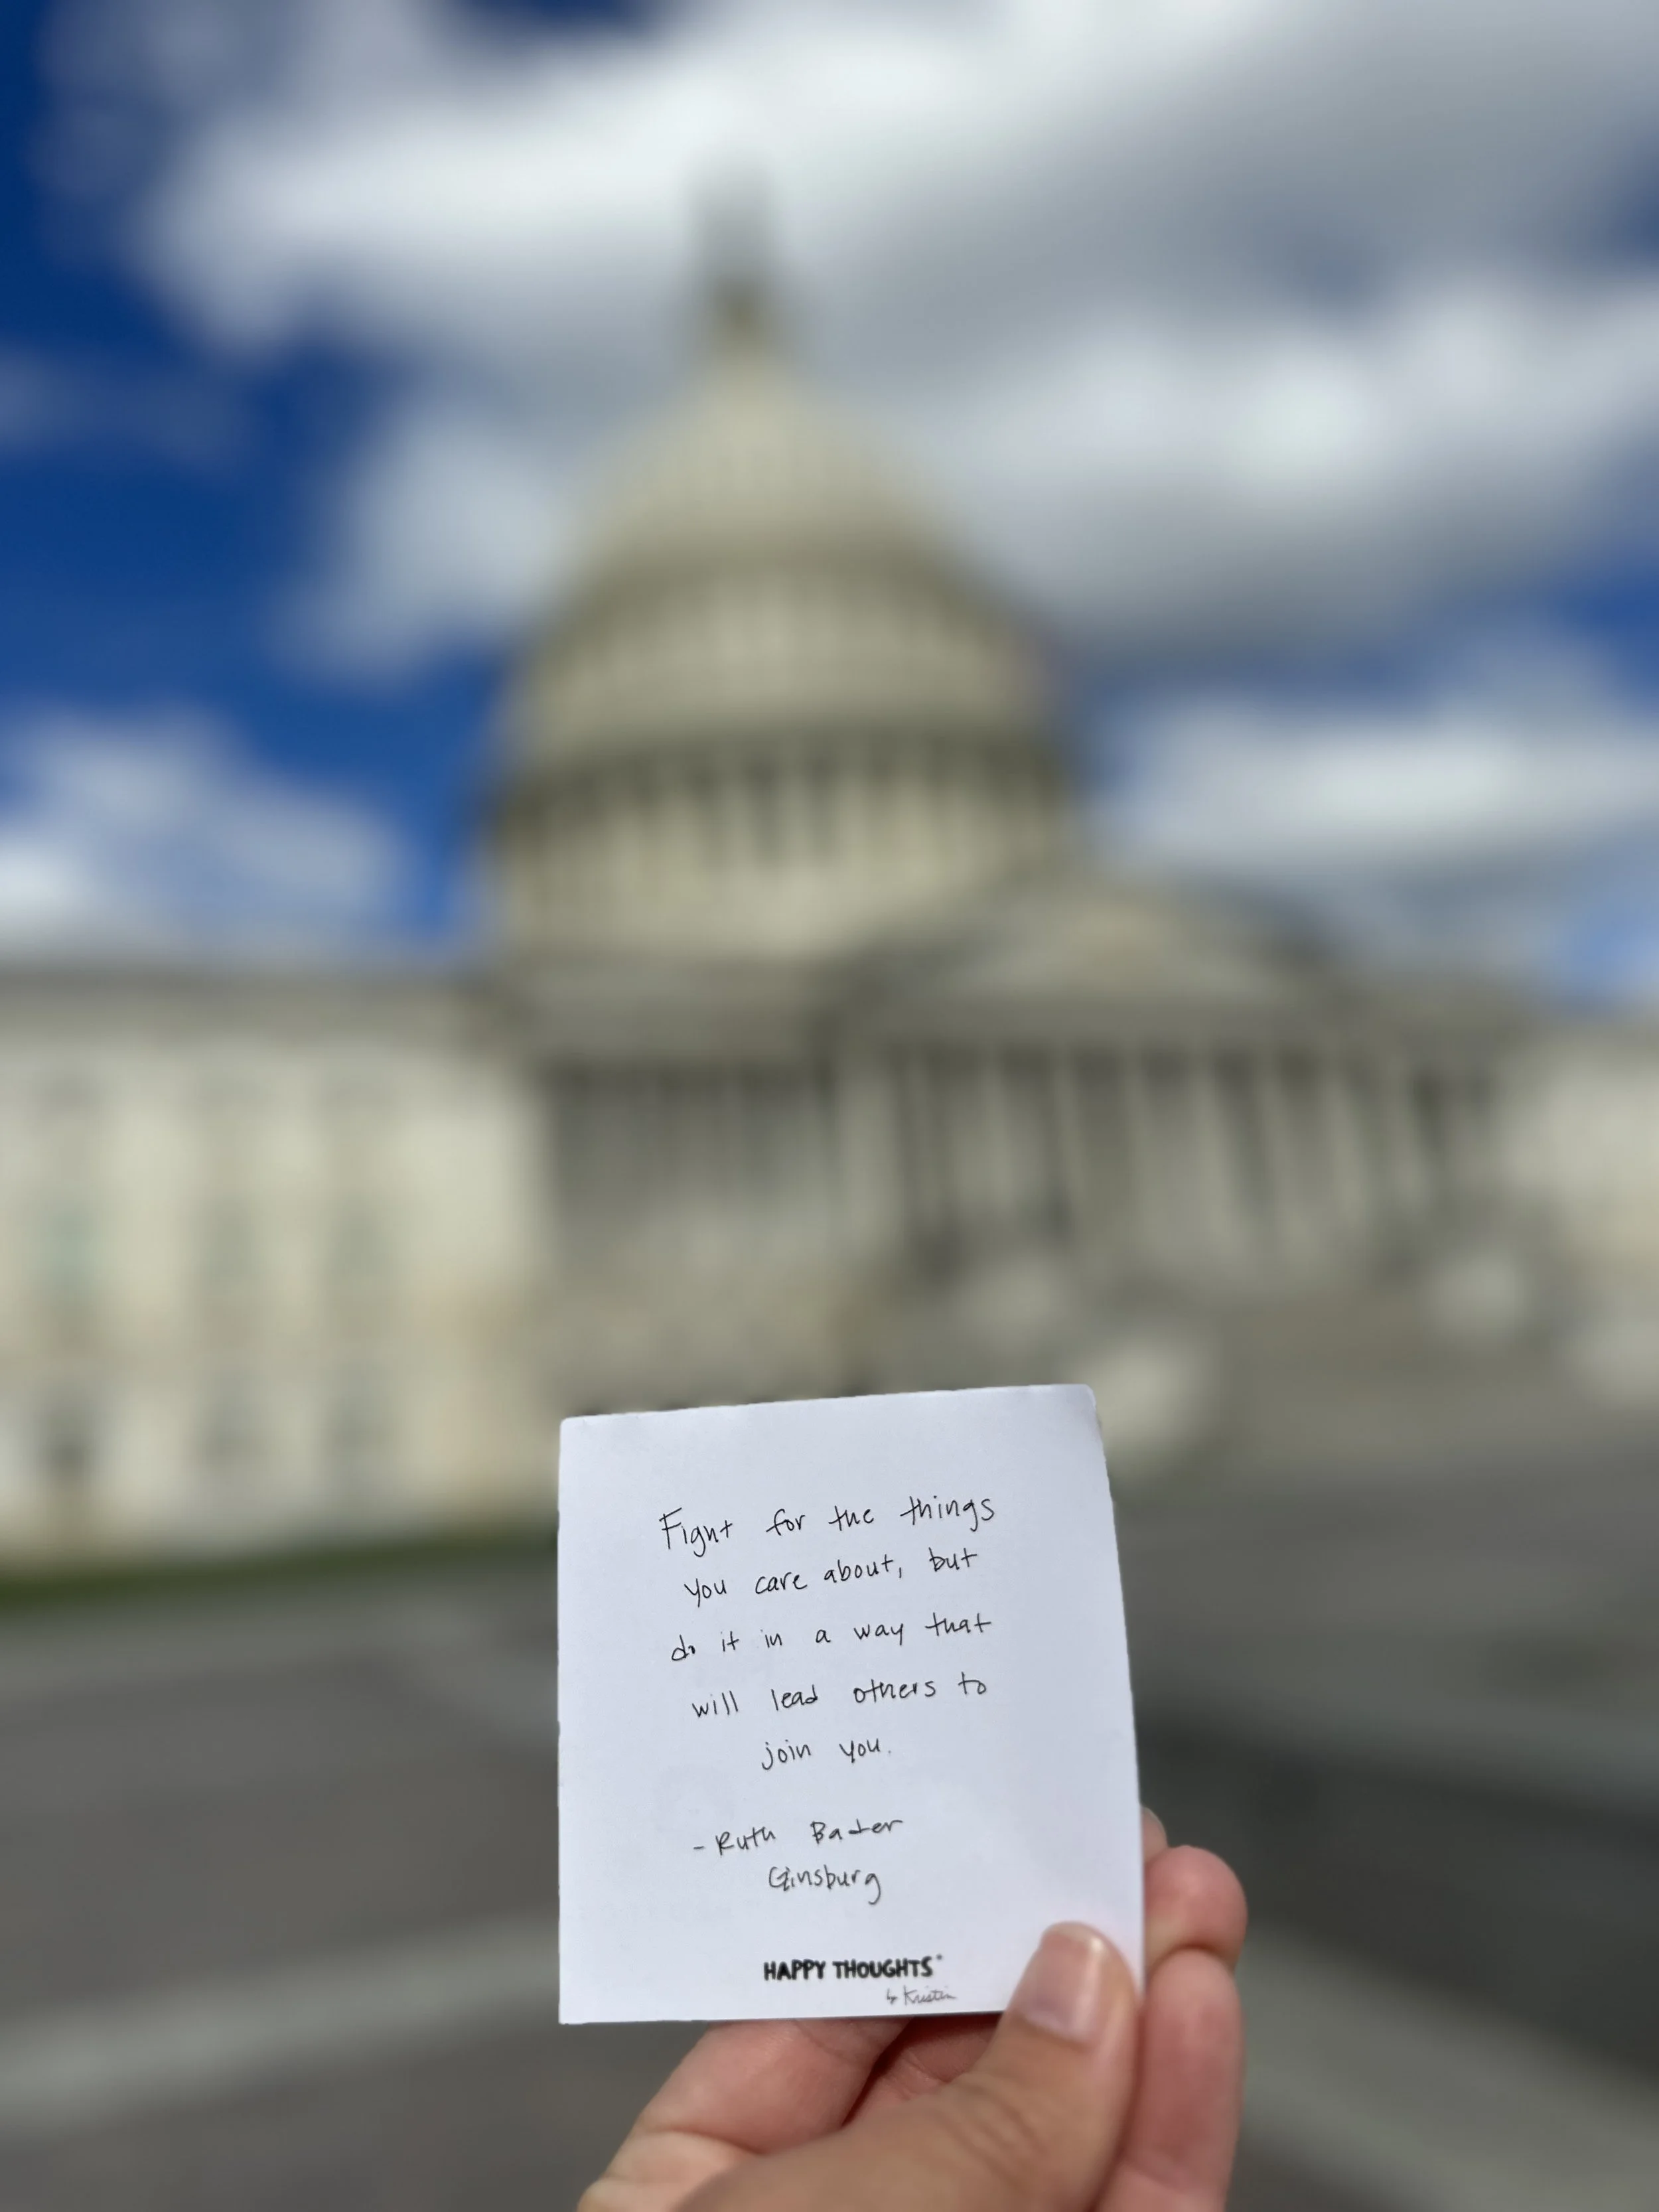 Fight for the things
you care about, but
do it in a way that
will lead others to
join you.
- Ruth Bader
Ginsburg
HAPPY THOUGHTS
by Kristin